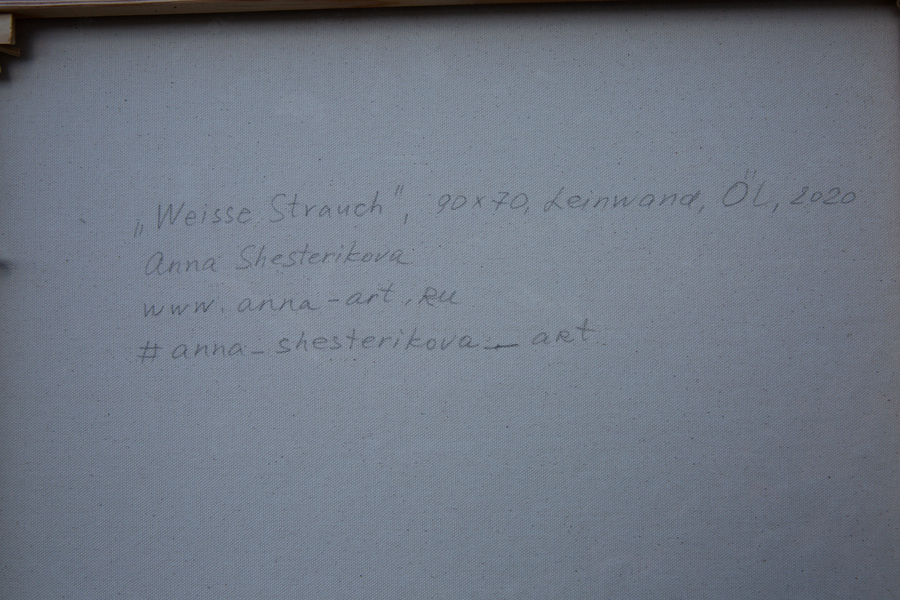 „Weisse Strauch", 90x70, Leinwand, ÖL, 2020
Anna Shesterikova
www.anna-art.RU
#anna_shesterikova_aRt